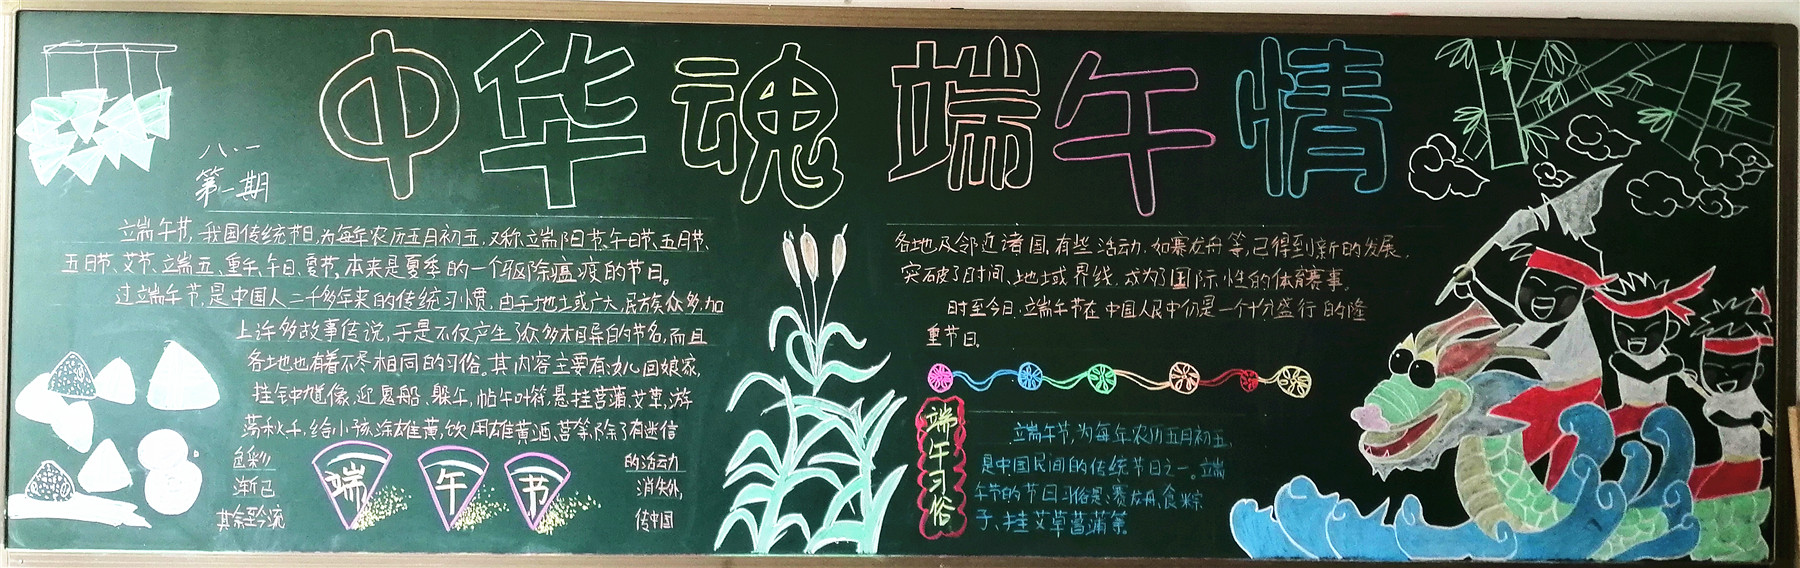 中华魂端午情
八.一
第一期
立端午节,我国传统节日,为每年农历五月初五,又称立端阳节、午日节、五月节、
五日节、艾节、立端五、重午、午日、夏节,本来是夏季的一个驱除瘟疫的节日。
过立端午节,是中国人二千多年来的传统习惯,由于地域广大,民族众多,加
上许多故事传说,于是不仅产生了众多相异的节名,而且
各地也有着不尽相同的习俗。其内容主要有:女儿回娘家,
挂钟馗像,迎鬼船、躲午,帖午叶符,悬挂菖蒲、艾草,游
荡秋千,给小孩涂雄黄,饮用雄黄酒、
除了有迷信
色彩
的活动
渐已
消失外,
其余至今流
传中国
端午节
各地及邻近诸国,有些活动,如赛龙舟等,已得到新的发展,
突破了时间、地域界线,成为了国际性的体育赛事。
时至今日,立端午节在中国人民中仍是一个十分盛行的隆
重节日。
端午习俗
立端午节,为每年农历五月初五,
是中国民间的传统节日之一。端
午节的节日习俗是:赛龙舟,食粽
子、挂艾草菖蒲等。